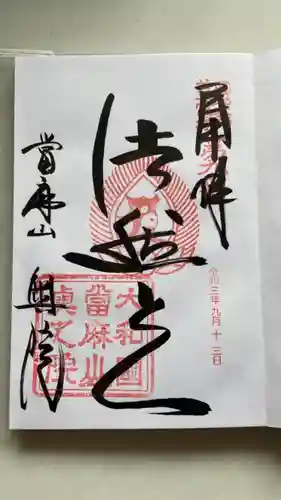 奉拝
令和三年九月十三日
法然上人
大和國
當麻山
奥之院
當麻山
奥院